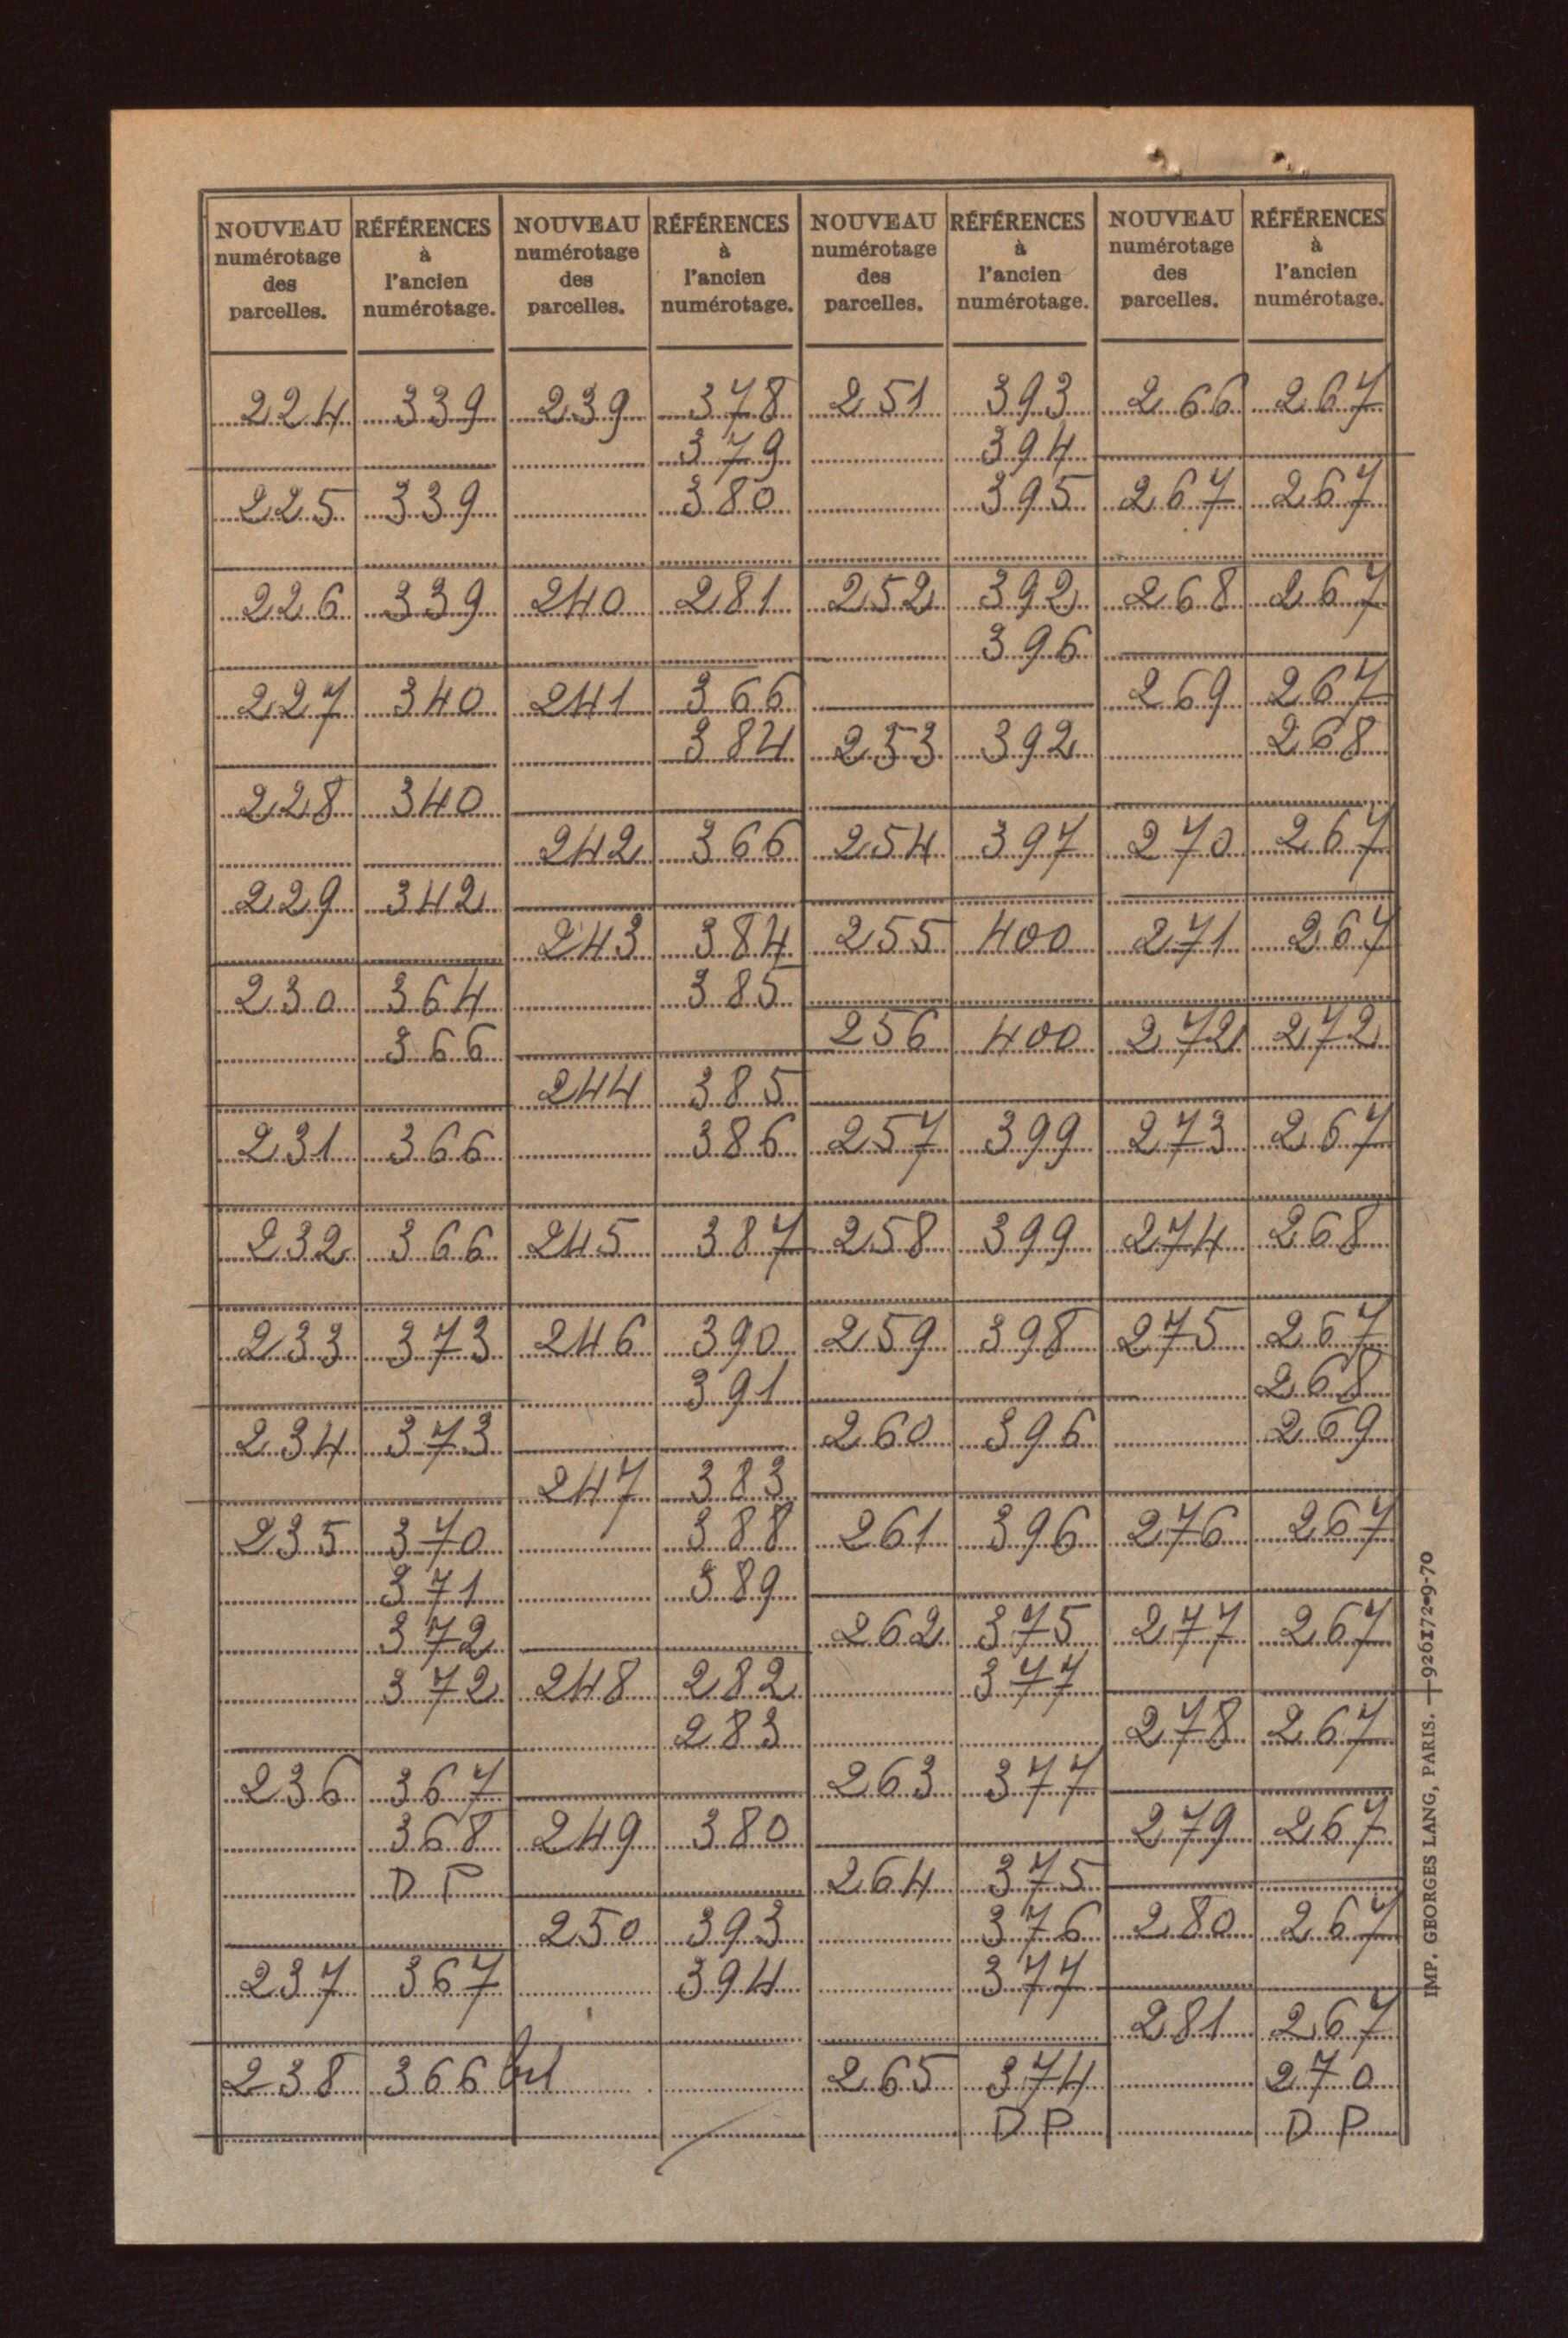 NOUVEAU numérotage des parcelles. RÉFÉRENCES à l'ancien numérotage. NOUVEAU numérotage des parcelles. RÉFÉRENCES à l'ancien numérotage. NOUVEAU numérotage des parcelles. RÉFÉRENCES à l'ancien numérotage. NOUVEAU numérotage des parcelles. RÉFÉRENCES à l'ancien numérotage.
224 339
225 339
226 339
227 340
228 340
229 342
230 364
366
231 366
232 366
233 373
234 373
235 370
371
372
372
236 367
368
D P
237 367
238 366 bis
239 378
379
380
240 281
241 366
384
242 366
243 384
385
244 385
386
245 387
246 390
391
247 383
388
389
248 282
283
249 380
250 393
394
251 393
394
395
252 392
396
253 392
254 397
255 400
256 400
257 399
258 399
259 398
260 396
261 396
262 375
377
263 377
264 375
376
377
265 374
D P
266 267
267 267
268 267
269 267
268
270 267
271 267
272 272
273 267
274 268
275 267
268
269
276 267
277 267
278 267
279 267
280 267
281 267
270
D P
IMP. GEORGES LANG, PARIS. — 926172-9-70